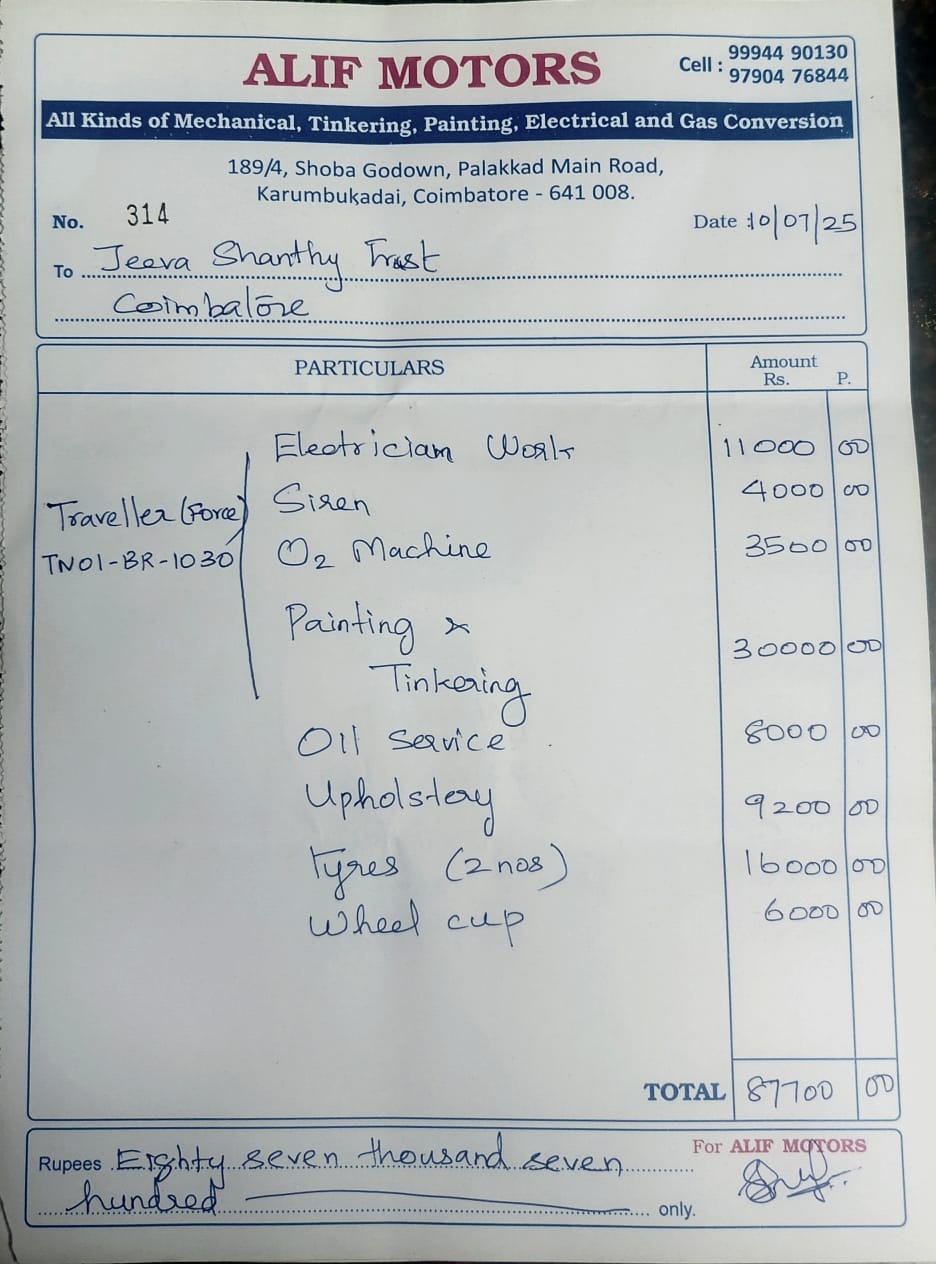 ALIF MOTORS
Cell : 99944 90130
97904 76844
All Kinds of Mechanical, Tinkering, Painting, Electrical and Gas Conversion
189/4, Shoba Godown, Palakkad Main Road,
Karumbukadai, Coimbatore - 641 008.
No. 314
Date : 10/07/25
To Jeeva Shanthy Trust
Coimbatore
PARTICULARS Amount Rs. P.
Electrician Work 11000 00
Siren 4000 00
Traveller (Force)
O2 Machine 3500 00
TN01-BR-1030
Painting &
Tinkering 30000 00
Oil Service 8000 00
Upholstery 9200 00
Tyres (2 nos) 16000 00
Wheel cup 6000 00
TOTAL 87700 00
Rupees Eighty seven thousand seven
hundred only.
For ALIF MOTORS